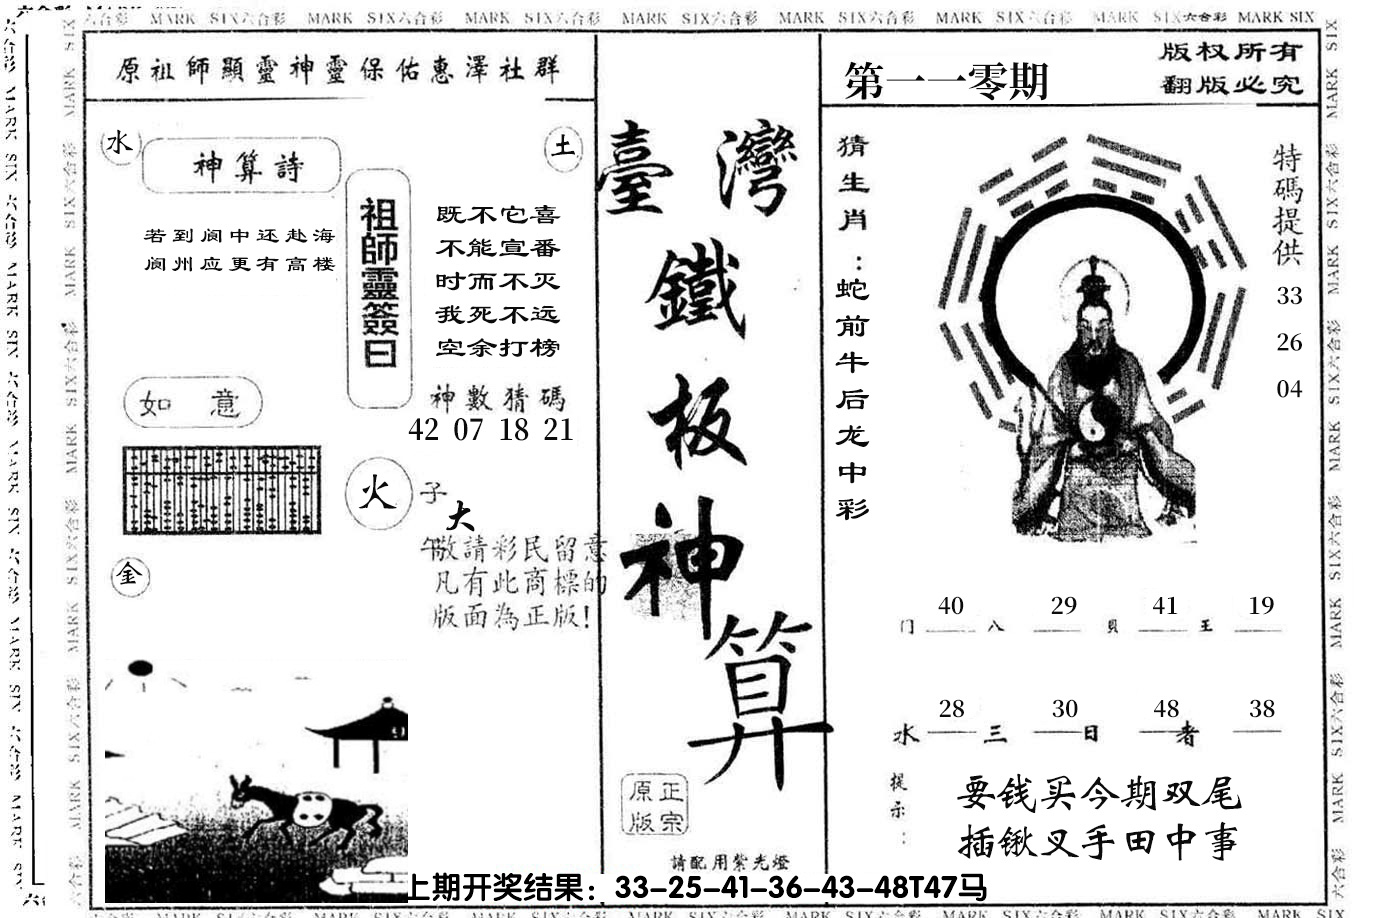 六合彩 MARK SIX六合彩 MARK SIX六合彩 MARK SIX六合彩 MARK SIX六合彩 MARK SIX六合彩 MARK SIX六合彩 MARK SIX六合彩 MARK SIX六合彩 MARK SIX
原祖師顯靈神靈保佑惠澤社群
水
土
神算詩
若到阆中还赴海
阆州应更有高楼
祖師靈簽曰
既不它喜
不能宣番
时而不灭
我死不远
空余打榜
神數猜碼
42 07 18 21
如 意
火
子
大
午
敬請彩民留意
凡有此商標的
版面為正版!
金
臺灣
鐵
板
神
算
原正
版宗
請配用紫光燈
第一一零期
版权所有
翻版必究
猜生肖:蛇前牛后龙中彩
特碼提供
33
26
04
40 29 41 19
门 八 貝 王
28 30 48 38
水 三 日 者
提示:
要钱买今期双尾
插锹叉手田中事
上期开奖结果：33-25-41-36-43-48T47马